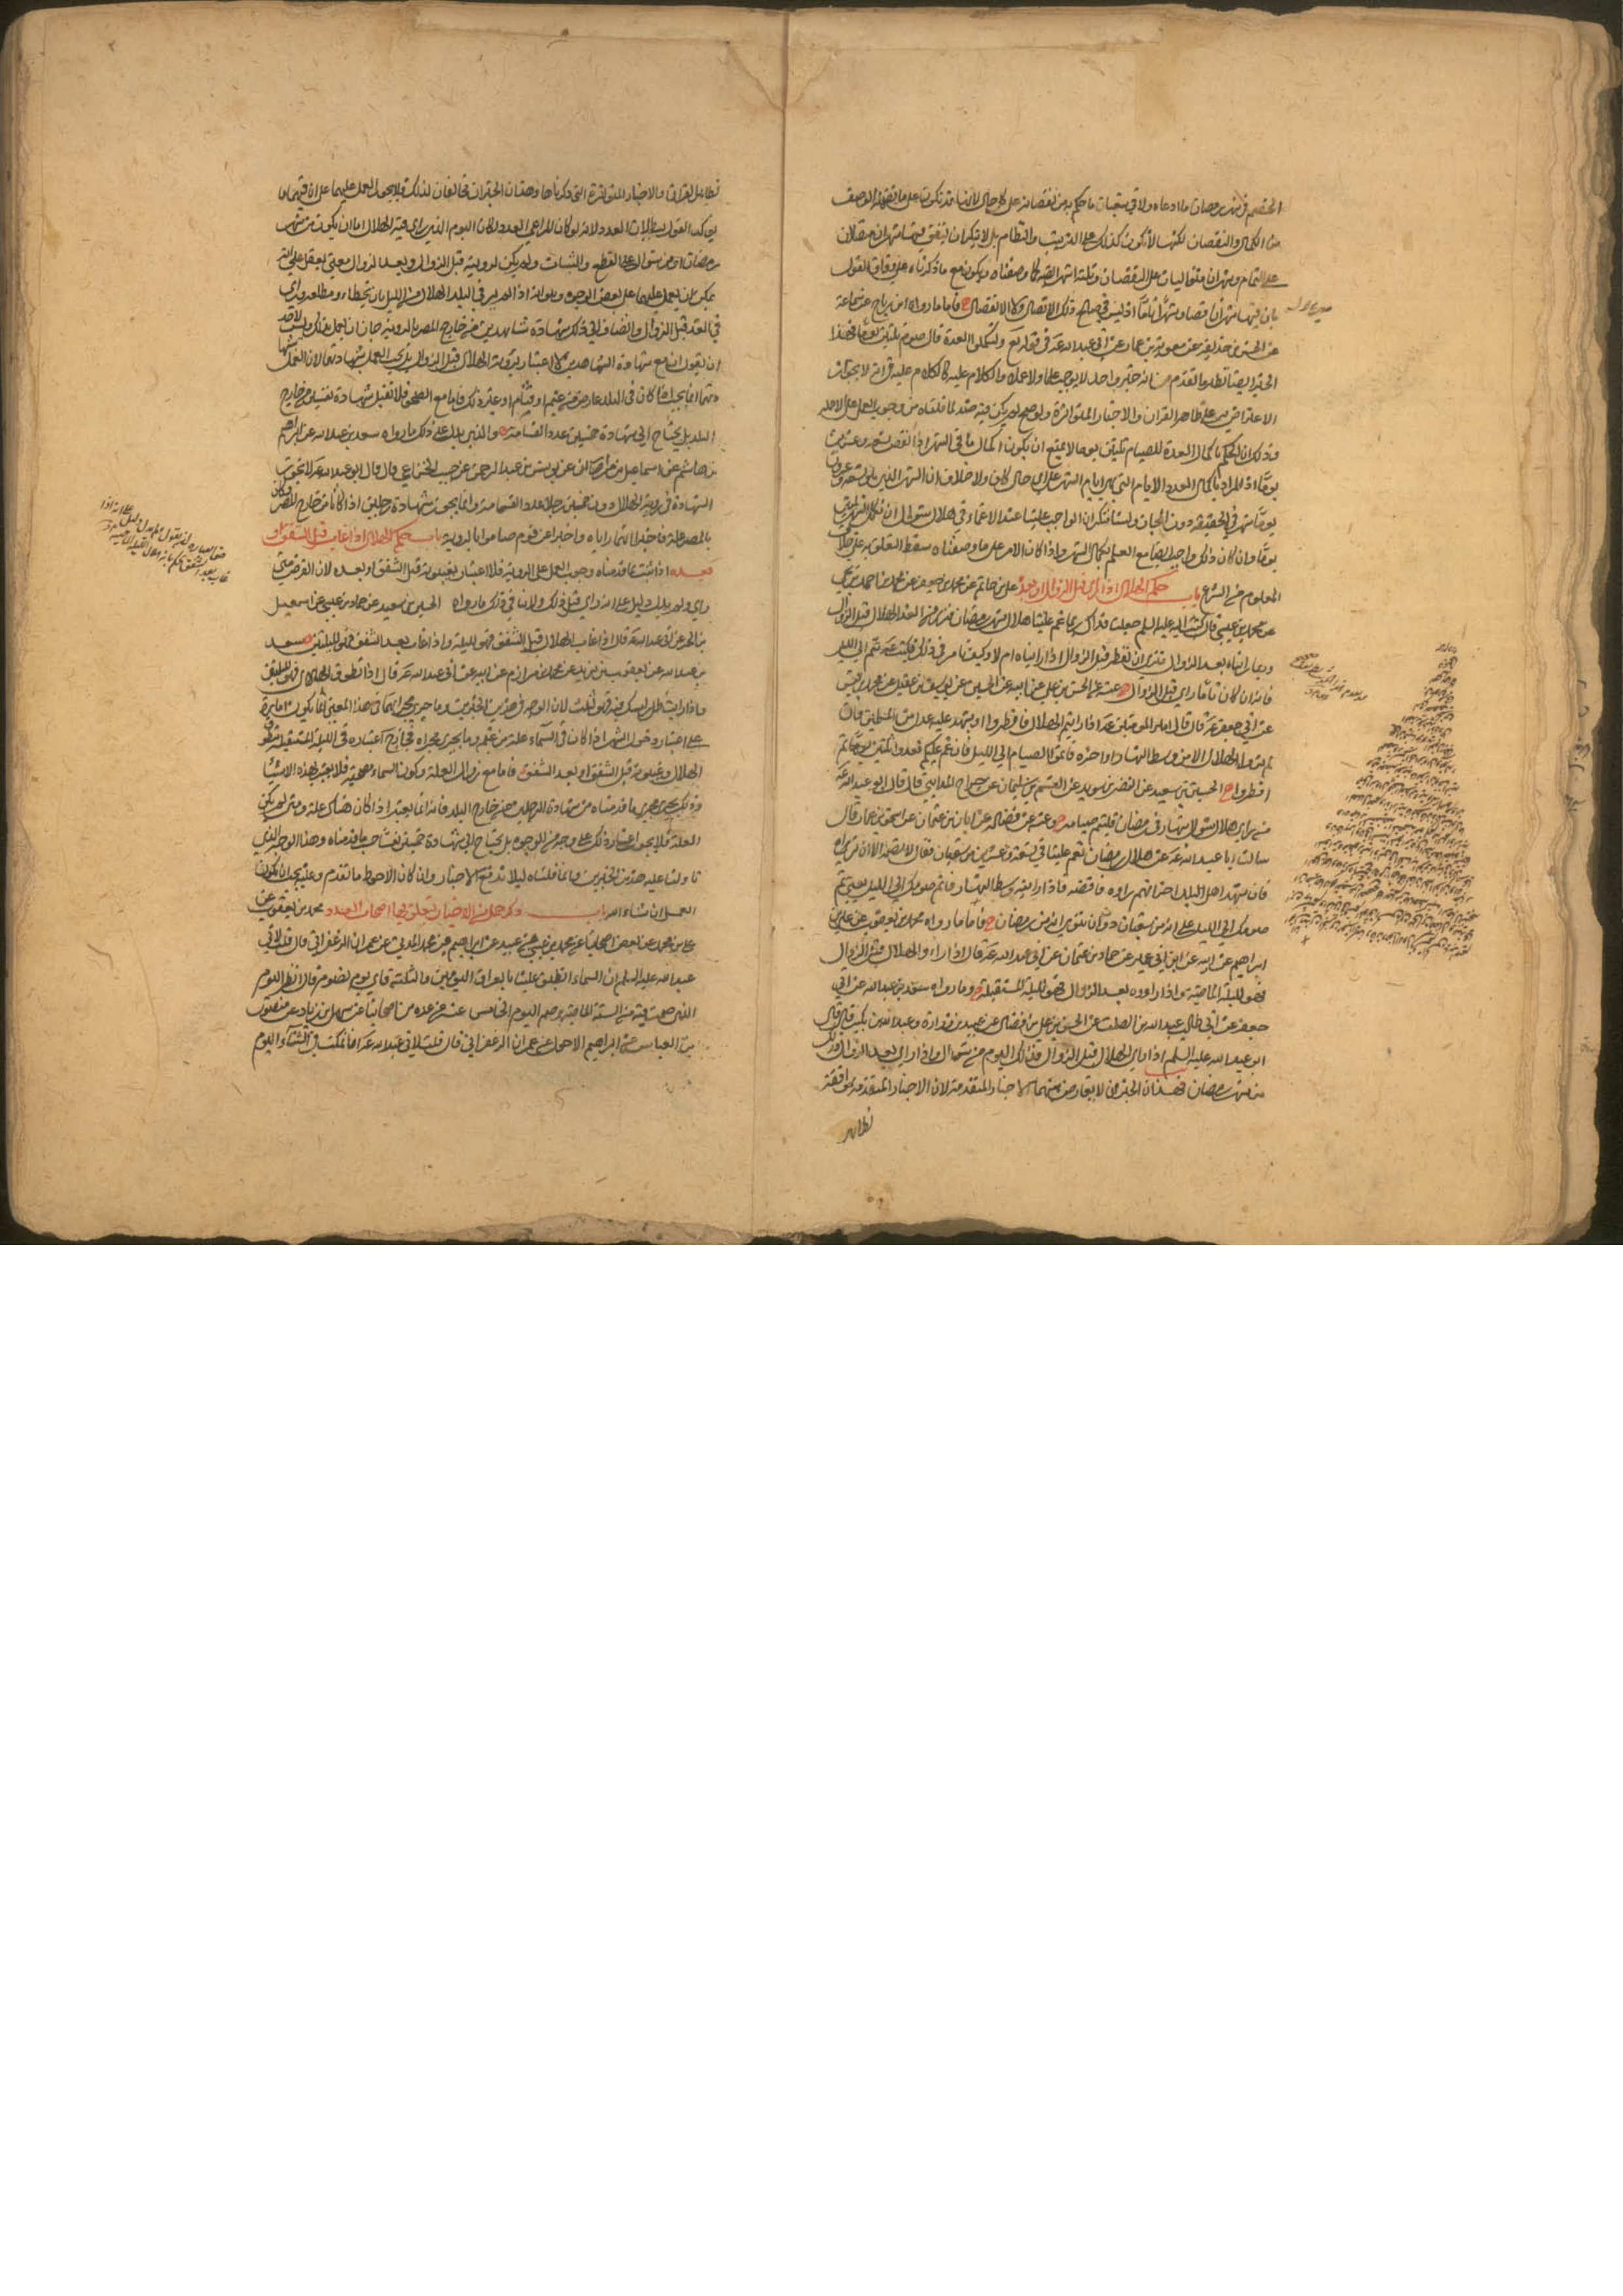 الخصم في شهر رمضان ما ادعاه ولا في شعبان ما حكم به من نقصانه على كل حال لانها قد تكون على ما تضمنه الوصف
من الكمال والنقصان لكنها لا تكون كذلك على الترتيب والنظام بل لا ينكر ان يتفق فيها شهران متصلان
على التمام وشهران متواليان على النقصان وثلثة اشهر ايضا كما وصفناه ويكون مع ما ذكرناه على وفاق القول
بان فيها شهران ناقصا وشهرا تاما اذ ليس في صريحه ذكر الاتصال ولا الانفصال فاما ما رواه ابن رباح عن سماعة
عن الحسن بن حذيفة عن معوية بن عمار عن ابي عبد الله ع في قوله تع ولتكملوا العدة قال صوم ثلثين يوما فهذا
الخبر ايضا نظير ما تقدم من انه خبر واحد لا يوجب علما ولا عملا والكلام عليه كالكلام عليه في انه لا يجوز
الاعتراض به على ظاهر القران والاخبار المتواترة ولو صح لم يكن فيه ضد لما قلناه من وجوب العمل على الاهلة
وذلك ان الحكم باكمال العدة للصيام ثلثين يوما لا يمنع ان يكون اكمال ما في الشهر اذا نقص تسعة وعشرين
يوما اذ المراد باكمال العدد الايام التي هي ايام الشهر على اي حال كان ولا خلاف ان الشهر الذي هو تسعة وعشرون
يوما شهر في الحقيقة دون المجاز ولسنا ننكر ان الواجب علينا عند الاغماء في هلال شوال ان نكمل الشهر ثلثين
يوما وان كان ذلك واجبا ايضا مع العلم بكمال الشهر واذا كان الامر على ما وصفناه سقط التعلق به على خلاف
المعلوم من الشرع باب حكم الهلال اذا رأي قبل الزوال او بعده علي بن حاتم عن محمد بن جعفر عن محمد بن احمد بن يحيى
عن محمد بن عيسى قال كتبت اليه عليه السلم جعلت فداك ربما غم علينا هلال شهر رمضان فنرى من الغد الهلال قبل الزوال
وربما رايناه بعد الزوال فترى ان نفطر قبل الزوال اذا رايناه ام لا وكيف تامر في ذلك فكتب ع تتم الى الليل
فانه ان كان تاما رأي قبل الزوال عنه عن الحسن بن علي عن ابيه عن الحسين عن يوسف بن عقيل عن محمد بن قيس
عن ابي جعفر ع قال قال امير المومنين ع اذا رايتم الهلال فافطروا او يشهد عليه عدل من المسلمين وان
لم تروا الهلال الا من وسط النهار او اخره فاتموا الصيام الى الليل فان غم عليكم فعدوا ثلثين يوما ثم
افطروا الحسين بن سعيد عن النضر بن سويد عن القسم بن سليمان عن جراح المدايني قال قال ابو عبد الله ع
من راي هلال شوال بنهار في رمضان فليتم صيامه وعنه عن فضالة عن ابان بن عثمان عن اسحق بن عمار قال
سالت ابا عبد الله ع عن هلال رمضان يغم علينا في تسعة وعشرين من شعبان فقال لا تصمه الا ان تراه
فان شهد اهل البلد اخر انهم راوه فاقضه فاذا رايته وسط النهار فاتم صومك الى الليل يعني بتم
صومك الى الليل على انه من شعبان دون ان تنوي انه من رمضان فاما ما رواه محمد بن يعقوب عن علي بن
ابراهيم عن ابيه عن ابن ابي عمير عن حماد بن عثمان عن ابي عبد الله ع قال اذا راوا الهلال قبل الزوال
فهو لليلة الماضية واذا راوه بعد الزوال فهو لليلة المستقبلة وما رواه سعد بن عبد الله عن ابي
جعفر عن ابي طالب عبد الله بن الصلت عن الحسن بن علي بن فضال عن عبيد بن زرارة وعبد الله بن بكير قال قال
ابو عبد الله عليه السلم اذا راي الهلال قبل الزوال فذلك اليوم من شوال واذا راي بعد الزوال فذلك
من شهر رمضان فهذان الخبران لا يعارض بهما الاخبار المتقدمة لان الاخبار المتقدمة موافقة
لظاهر
لظاهر القران والاخبار المتواترة التي ذكرناها وهذان الخبران مخالفان لذلك فلا يجوز العمل عليهما على ان فيهما ما
يوكد القول ببطلان العدد لانه لو كان المراعى العدد لكان اليوم الذي راي فيه الهلال اما ان يكون من شهر
رمضان او من شوال على القطع والثبات ولم يكن لرويته قبل الزوال وبعد الزوال معنى يعقل على انه
يمكن ان يعمل عليهما على بعض الوجوه وهو انه اذا لم ير في البلد الهلال من الليل بان يخطاء ومطلعه وراي
في الغد قبل الزوال وانضاف الى ذلك شهادة شاهدين من خارج المصر بالروية جاز ان يعمل بذلك وليس لاحد
ان يقول ان مع شهادة الشاهدين لا اعتبار بروية الهلال قبل الزوال بل يجب العمل بشهادتهما لان العمل بشهادتهما
انما يجب اذا كان في البلد عارض من غيم او قتام او غير ذلك فاما مع الصحو فلا تقبل شهادة نفسين من خارج
البلد بل يحتاج الى شهادة خمسين عدد القسامة والذي يدل على ذلك ما رواه سعد بن عبد الله عن ابراهيم
بن هاشم عن اسماعيل بن مرار عن يونس بن عبد الرحمن عن حبيب الخزاعي قال قال ابو عبد الله ع لا تجوز
الشهادة في روية الهلال دون خمسين رجلا عدد القسامة وانما يجوز شهادة رجلين اذا كانا من خارج المصر وكان
بالمصر علة فاخبرا انهما راياه واخبرا عن قوم صاموا بالروية باب حكم الهلال اذا غاب قبل الشفق او
بعده اذا ثبت بما قدمناه وجوب العمل على الروية فلا اعتبار بغيبوبته قبل الشفق او بعده لان الفرض متى
راي ولم يدل دليل على انه راي قبل ذلك ولا ينافي ذلك ما رواه الحسين بن سعيد عن حماد بن عيسى عن اسمعيل
بن الحر عن ابي عبد الله ع قال اذا غاب الهلال قبل الشفق فهو لليلة واذا غاب بعد الشفق فهو لليلتين سعد
بن عبد الله عن يعقوب بن يزيد عن محمد بن مرازم عن ابيه عن ابي عبد الله ع قال اذا تطوق الهلال فهو لليلتين
واذا رايت ظل راسك فيه فهو لثلث لان الوجه في هذين الخبرين وما جرى مجراهما في هذا المعنى انما يكون امارة
على اعتبار دخول الشهر اذا كان في السماء علة من غيم وما يجري مجراه فجاز ح اعتباره في الليلة المستقبلة بتطوق
الهلال وغيبوبته قبل الشفق او بعد الشفق فاما مع زوال العلة وكون السماء مصحية فلا يعتبر بهذه الاشياء
وذلك يجري مجرى ما قدمناه من شهادة الرجلين من خارج البلد فانه انما يعتبر اذا كان هناك علة ومتى لم يكن
العلة فلا يجوز اعتبار ذلك على وجه من الوجوه بل يحتاج الى شهادة خمسين نفسا حسب ما قدمناه وهذا الوجه الذي
تاولنا عليه هذين الخبرين فانما قلناه ليلا تدفع الاخبار وان كان الاحوط ما تقدم وعليه يجب ان يكون
العمل ان شاء الله باب ذكر جمل من الاخبار تتعلق بها اصحاب العدد محمد بن يعقوب عن
علي بن محمد عن بعض اصحابنا عن محمد بن عيسى بن عبيد عن ابراهيم بن محمد المدني عن عمران الزعفراني قال قلت لابي
عبد الله عليه السلم ان السماء تطبق علينا بالعراق اليومين والثلثة فاي يوم نصوم قال انظر اليوم
الذي صمت فيه من السنة الماضية وصم اليوم الخامس عنه عن عدة من اصحابنا عن سهل بن زياد عن منصور
بن العباس عن ابراهيم الاحول عن عمران الزعفراني قال قلت لابي عبد الله ع انا نمكث في الشتاء اليوم